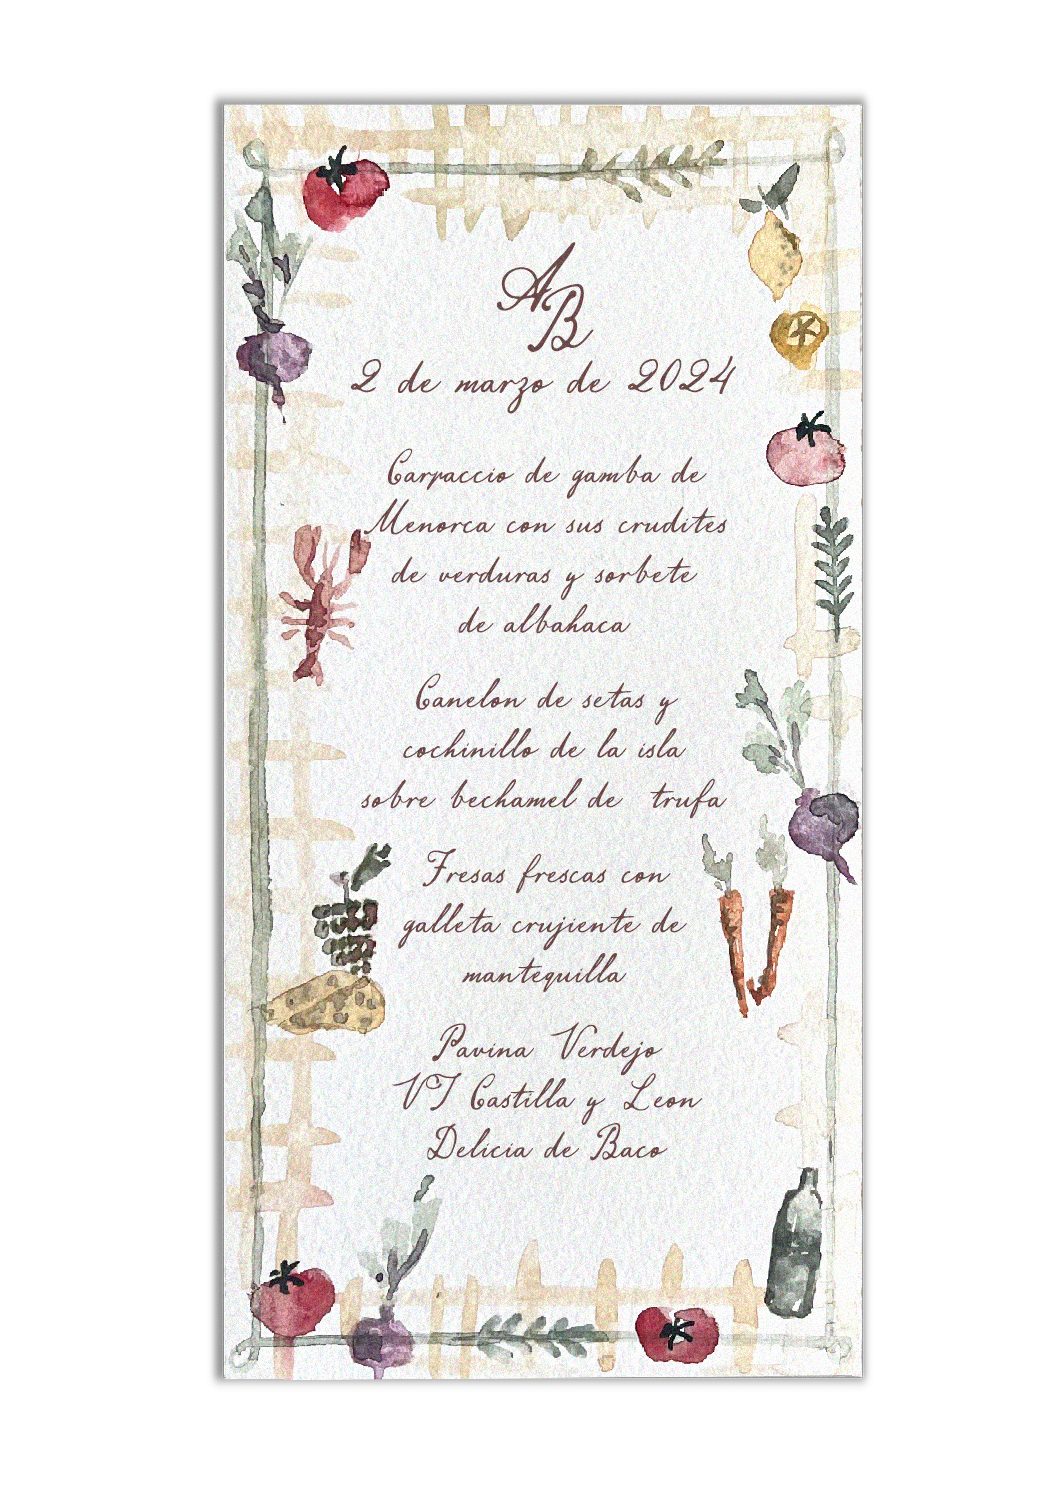 A
B
2 de marzo de 2024
Carpaccio de gamba de
Menorca con sus crudites
de verduras y sorbete
de albahaca
Canelon de setas y
cochinillo de la isla
sobre bechamel de trufa
Fresas frescas con
galleta crujiente de
mantequilla
Pavina Verdejo
VT Castilla y Leon
Delicia de Baco